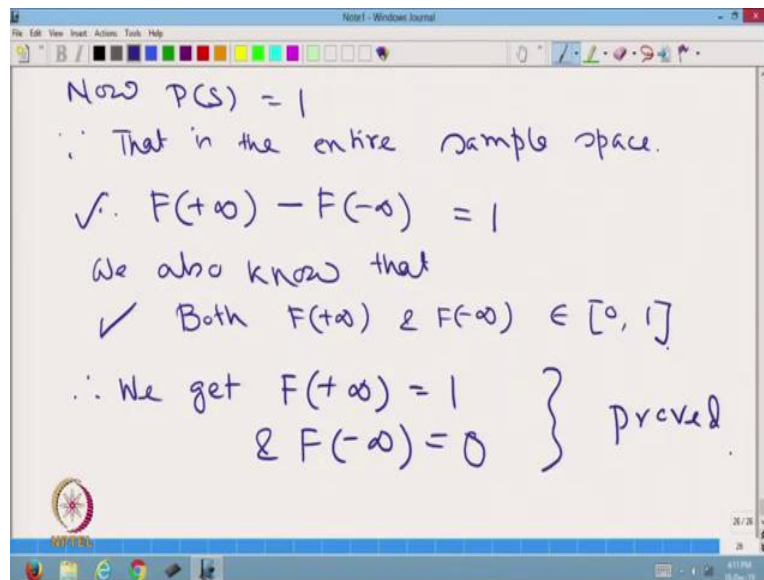 Note1 - Windows Journal
File Edit View Insert Actions Tools Help
Now P(S) = 1
∵ That is the entire sample space.
✓∴ F(+∞) − F(−∞) = 1
We also know that
✓ Both F(+∞) & F(−∞) ∈ [0, 1]
∴ We get F(+∞) = 1
& F(−∞) = 0 } proved.
NPTEL
26 / 26
26
4:11 PM